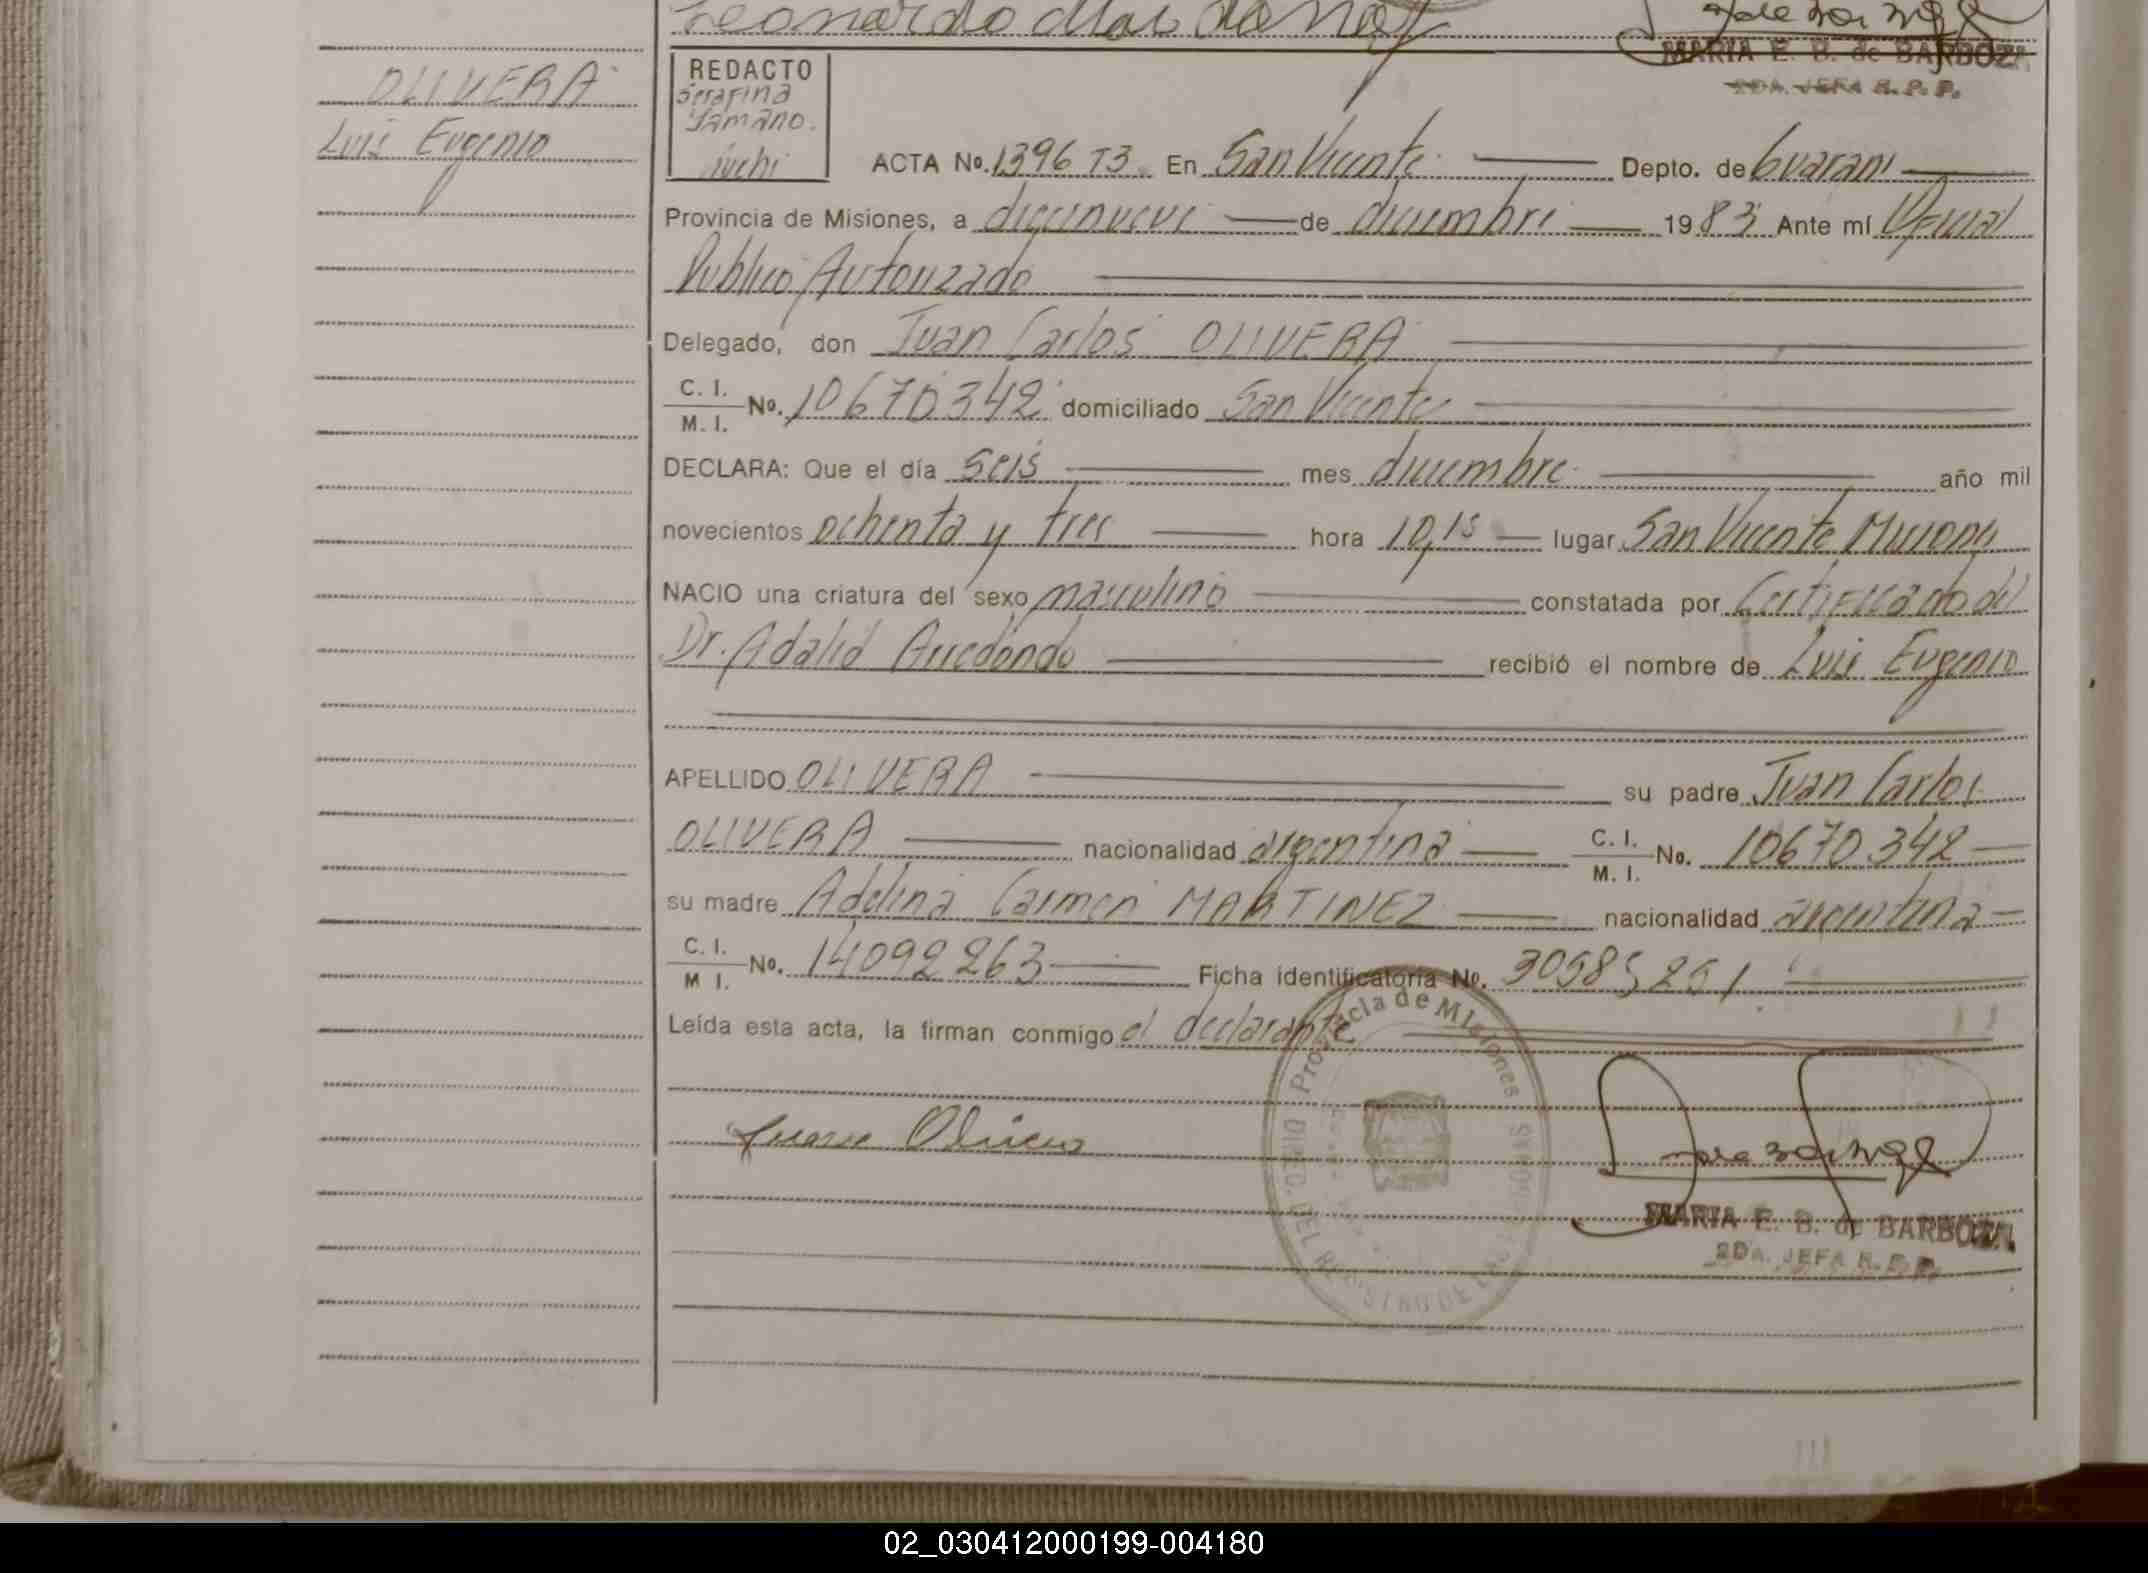 OLIVERA
Luis Eugenio
MARIA E. B. de BARBOZA
2DA. JEFA R. P. P.
REDACTO
Serafina
ACTA No. 1396 T3 En San Vicente Depto. de Guarani
Provincia de Misiones, a diecinueve de diciembre 1983 Ante mí Oficial
Publico Autorizado
Delegado, don Juan Carlos OLIVERA
C. I.
M. I. No. 10670342 domiciliado San Vicente
DECLARA: Que el día seis mes diciembre año mil
novecientos ochenta y tres hora 10,15 lugar San Vicente Misiones
NACIO una criatura del sexo masculino constatada por Certificado del
Dr. Adalid Arredondo recibió el nombre de Luis Eugenio
APELLIDO OLIVERA su padre Juan Carlos
OLIVERA nacionalidad argentina C. I.
M. I. No. 10670342
su madre Adelina Carmen MARTINEZ nacionalidad argentina
C. I.
M I. No. 14092263 Ficha identificatoria No. 30585251
Leída esta acta, la firman conmigo el declarante
Provincia de Misiones
DIREC. DEL REGISTRO DE LAS PERSONAS
MARIA E. B. de BARBOZA
2DA. JEFA R. P. P.
02_030412000199-004180